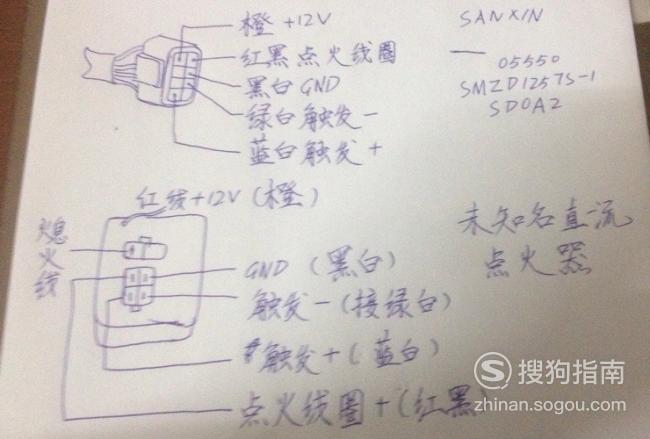 橙 +12V
红黑 点火线圈
黑白 GND
绿白 触发 -
蓝白 触发 +
SANXIN
05550
SMZD1257S-1
SD0A2
红线+12V (橙)
熄火线
GND (黑白)
触发 - (接绿白)
触发 + (蓝白)
点火线圈 + (红黑)
未知名直流
点火器
搜狗指南
zhinan.sogou.com